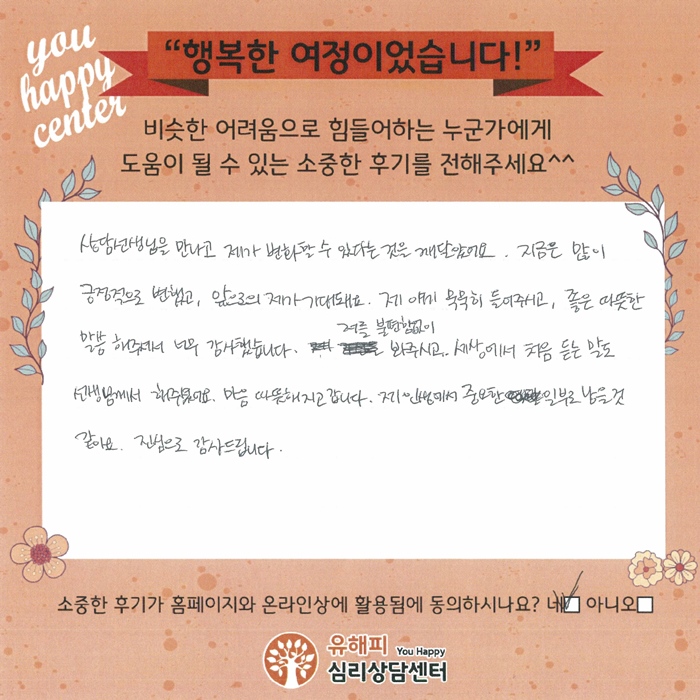 you
happy
center
“행복한 여정이었습니다!”
비슷한 어려움으로 힘들어하는 누군가에게
도움이 될 수 있는 소중한 후기를 전해주세요^^
상담선생님을 만나고 제가 변화할 수 있다는 것을 깨달았어요. 지금은 많이
긍정적으로 변했고, 앞으로의 제가 기대돼요. 제 얘기 묵묵히 들어주시고, 좋은 따뜻한
말씀 해주셔서 너무 감사했습니다. 저를 불편함없이 봐주시고.. 세상에서 처음 듣는 말도
선생님께서 해주셨어요. 마음 따뜻해지고 갑니다. 제 인생에서 중요한 일부로 남을 것
같아요. 진심으로 감사드립니다.
소중한 후기가 홈페이지와 온라인상에 활용됨에 동의하시나요? 네 아니오
유해피 You Happy
심리상담센터